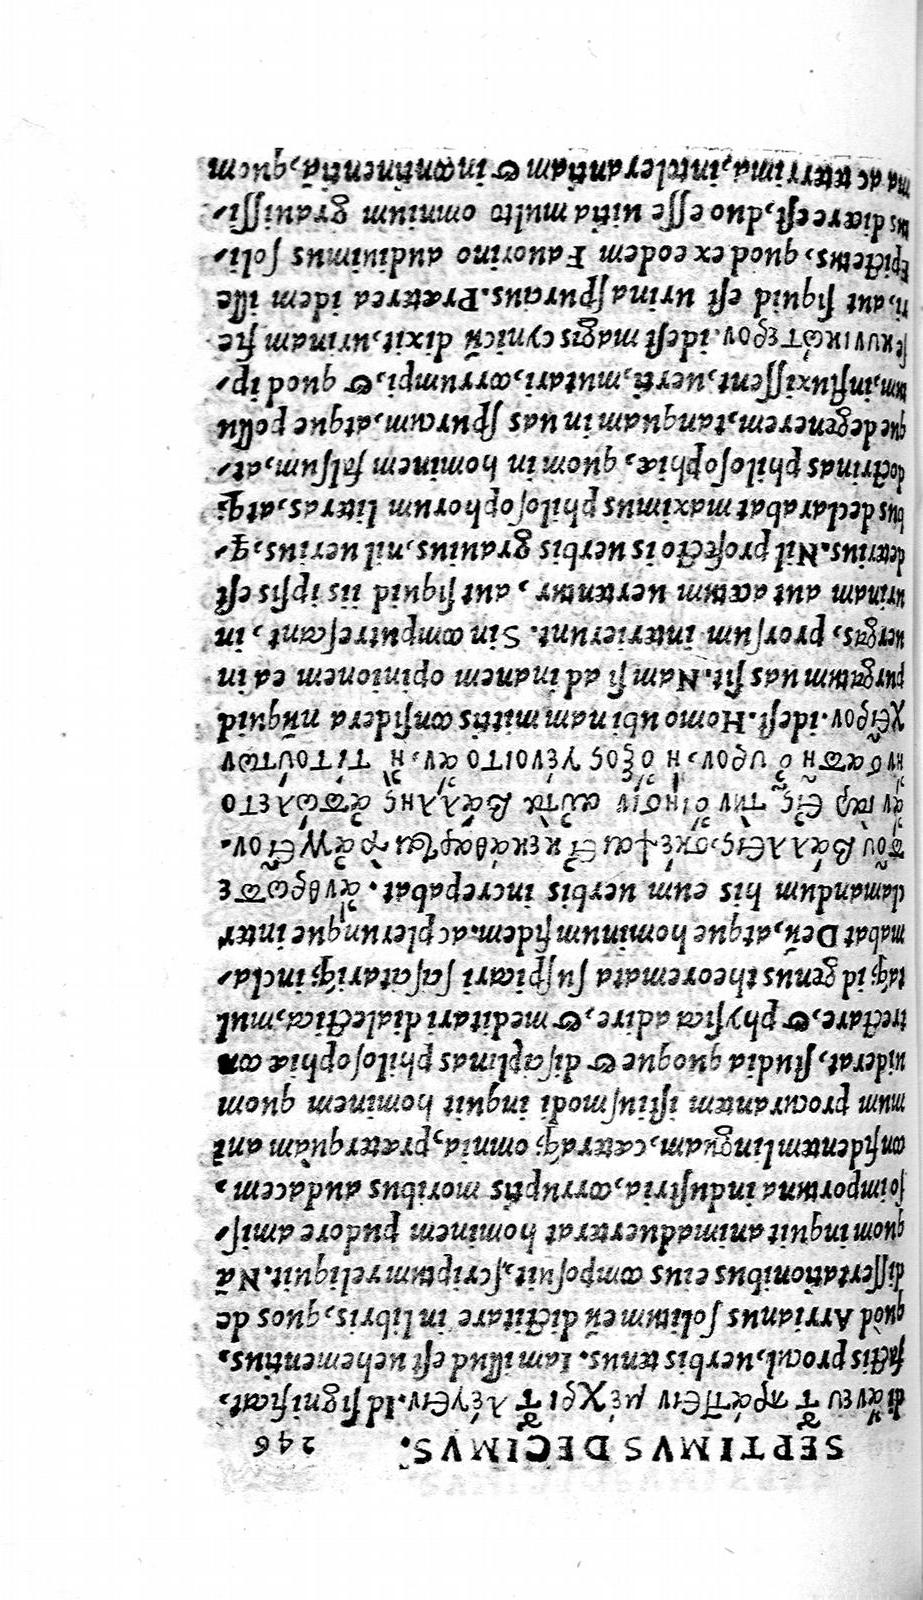 SEPTIMVS DECIMVS. 246
di ἄνευ τ πράττειν μέχρι τ λέγειν. Id significat,
factis procul, uerbis tenus. Iam illud est uehementius,
quòd Arrianus solitum eũ dictitare in libris, quos de
dissertationibus eius composuit, scriptum reliquit. Nã
quom inquit animaduerterat hominem pudore amis/
so importuna industria, corruptis moribus audacem,
confidentem linguam, cæteraq; omnia, præterquàm ani
mum procurantem istiusmodi inquit hominem quom
uiderat, studia quoque & disciplinas philosophiæ con
trectare, & physica adire, & meditari dialectica, mul
taq; id genus theoremata suspicari sciscitariq; incla/
mabat Deũ, atque hominum fidem. ac plerunque inter
clamandum his eum uerbis increpabat. ἄνθρωπε
ποῦ βάλλεις, σκέψαι εἰ κεκάθαρται τὸ ἀγγεῖον.
ἂν γὰρ εἰς τὴν οἴησιν αὐτὰ βάλλῃς ἀπώλετο
ἢν σαπῇ οὖρον, ἢ ὄξος γένοιτο ἂν, ἢ τι τούτων
χεῖρον. idest. Homo ubinam mittis considera nũquid
purgatum uas sit. Nam si ad inanem opinionem ea in
uergas, prorsum interierunt. Sin computrescant, in
urinam aut acetum uertentur, aut siquid iis ipsis est
deterius. Nil profecto is uerbis grauius, nil uerius, q̃/
bus declarabat maximus philosophorum litteras, atq;
doctrinas philosophiæ, quom in hominem falsum, at/
que degenerem, tanquam in uas spurcum, atque pollu
tum, influxissent, uerti, mutari, corrumpi, & quod ip/
se κυνικώτερον. idest magis cynicũ dixit, urinam fie
ri, aut siquid est urina spurcius. Præterea idem ille
Epictetus, quod ex eodem Fauorino audiuimus soli/
tus dicere est, duo esse uitia multo omnium grauissi/
ma ac teterrima, intolerantiam & incontinentiã, quom